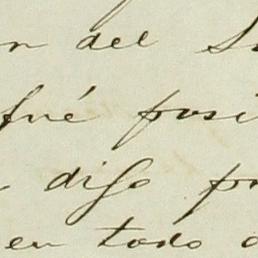 n del S
fué posi
digo pr
en todo